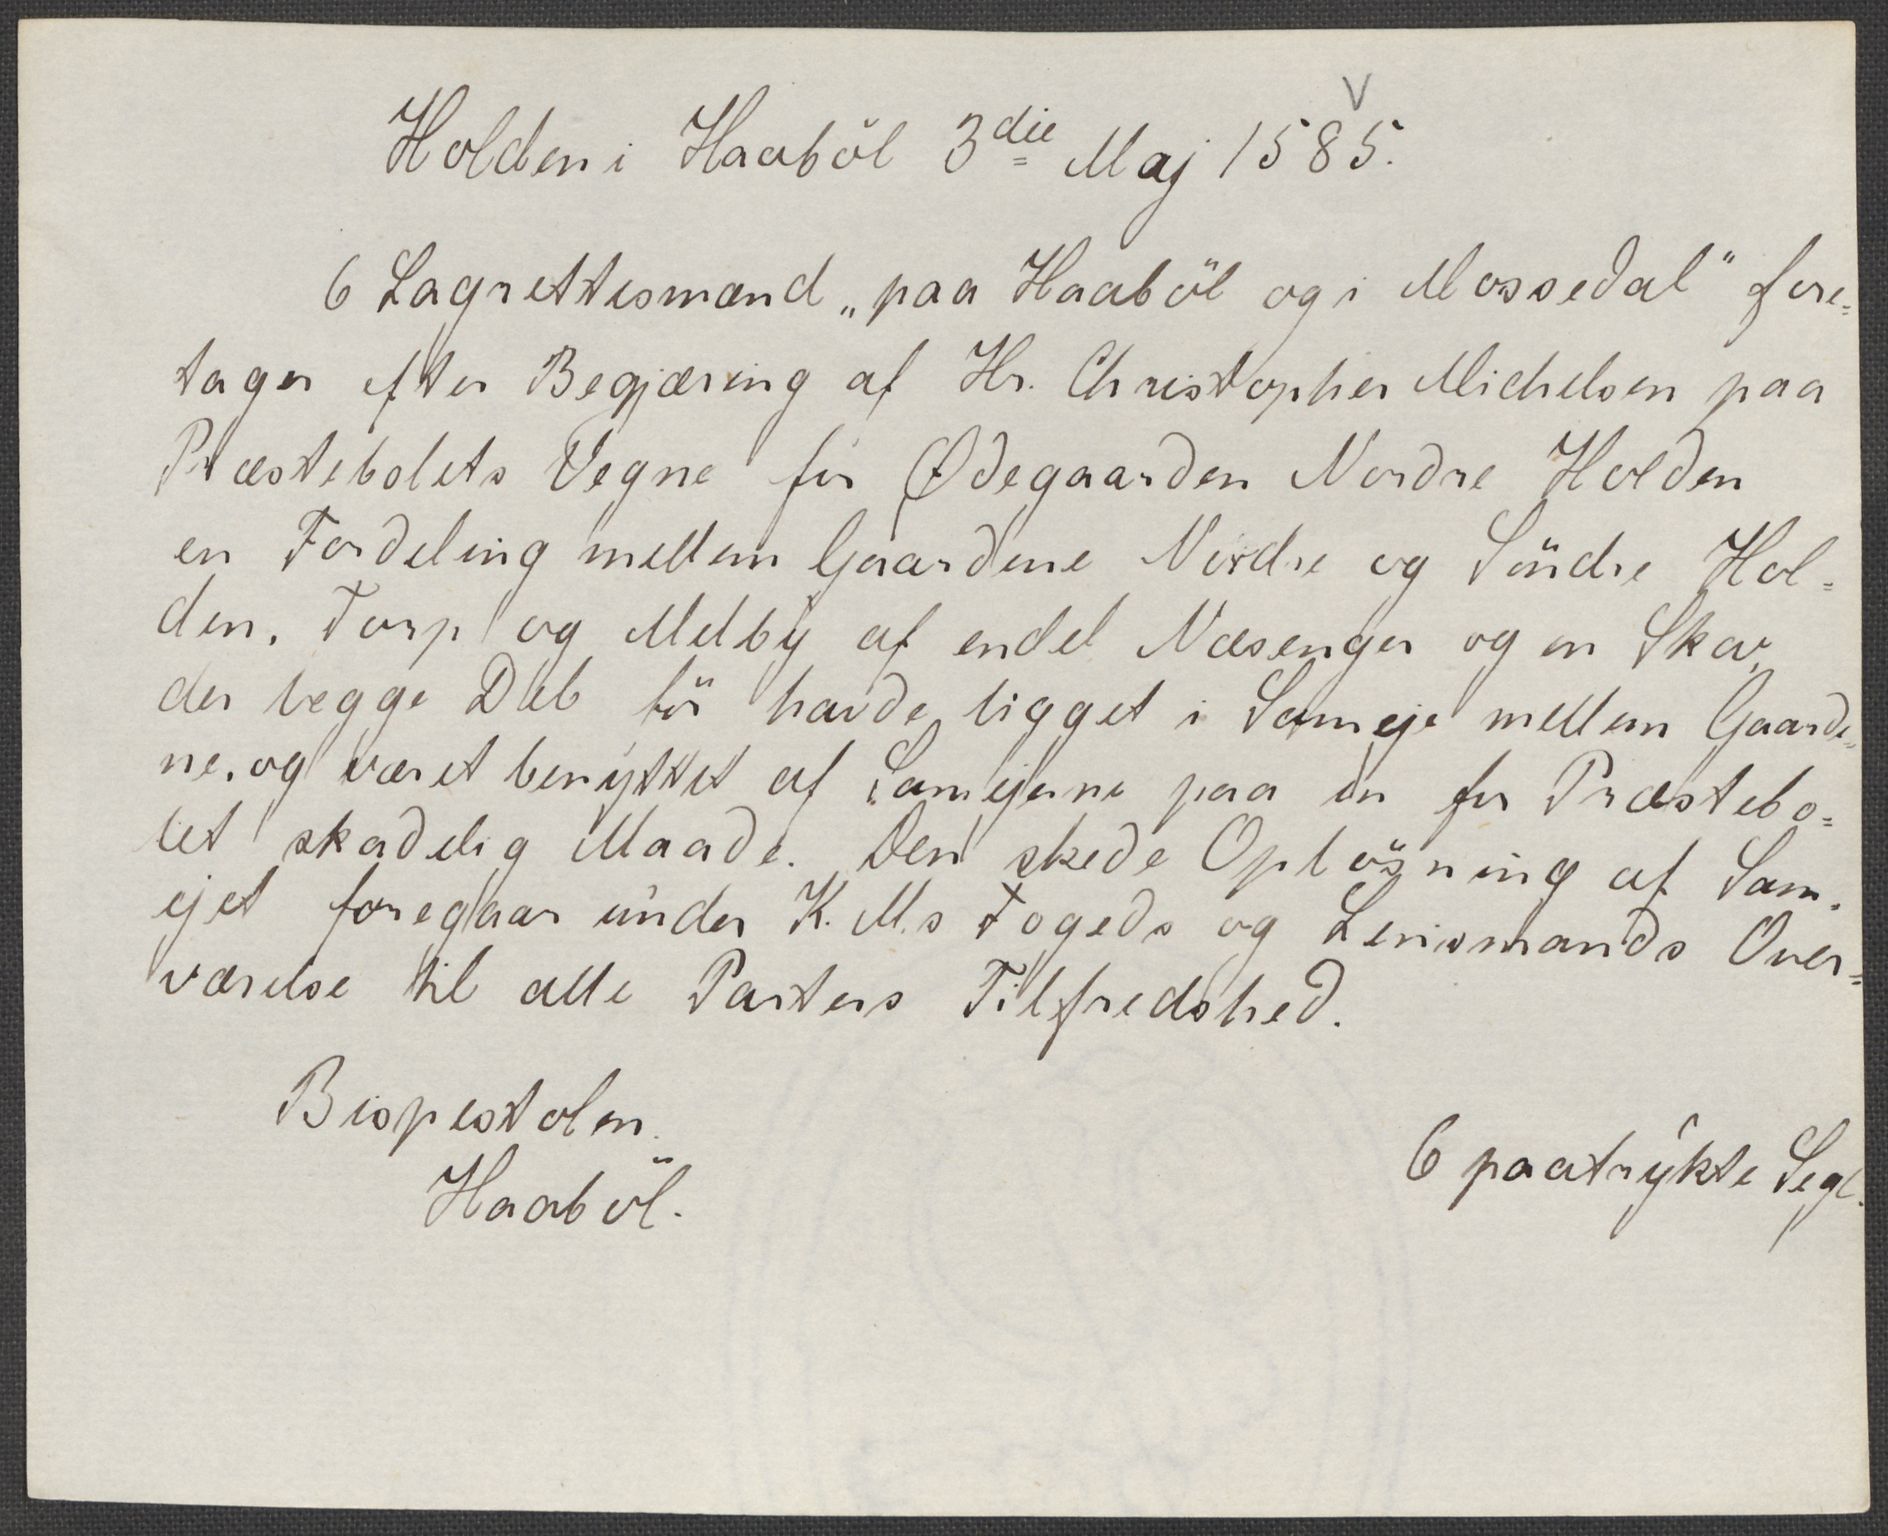 V
Holden i Haaböl 3die Maj 1585.
6 Lagrettesmænd „paa Haaböl og i Mossedal" fore=
tager efter Begjæring af Hr. Christopher Michelsen paa
Præstebolets Vegne for Ødegaarden Nordre Holden
en Fordeling mellem Gaardene Nordre og Söndre Hol=
den, Torp og Melby af endel Næsenger og en Skov,
der begge Dele för havde ligget i Sameje mellem Gaarde=
ne, og været benyttet af Samejerne paa en for Præstebo=
let skadelig Maade. Den skede Oplösning af Sam.
ejet foregaar under K. M.s Fogeds og Lensmands Over=
værelse til alle Parters Tilfredshed.
Bispestolen.
Haaböl.
6 paatrykte Segl.